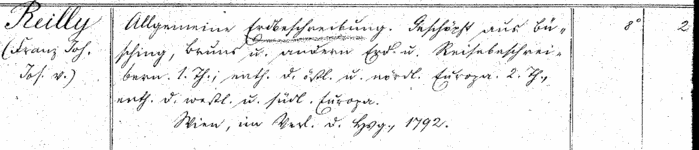 Reilly Allgemeine Erdbeschreibung. Geschöpft aus Bü- 8° 2
(Franz Joh. sching, Bruns u. andern Erd- u. Reisebeschrei-
Jos. v.) bern. 1. Th., enth. d. östl. u. nördl. Europa. 2. Th.,
enth. d. westl. u. südl. Europa.
Wien, im Verl. d. Hsg., 1792.